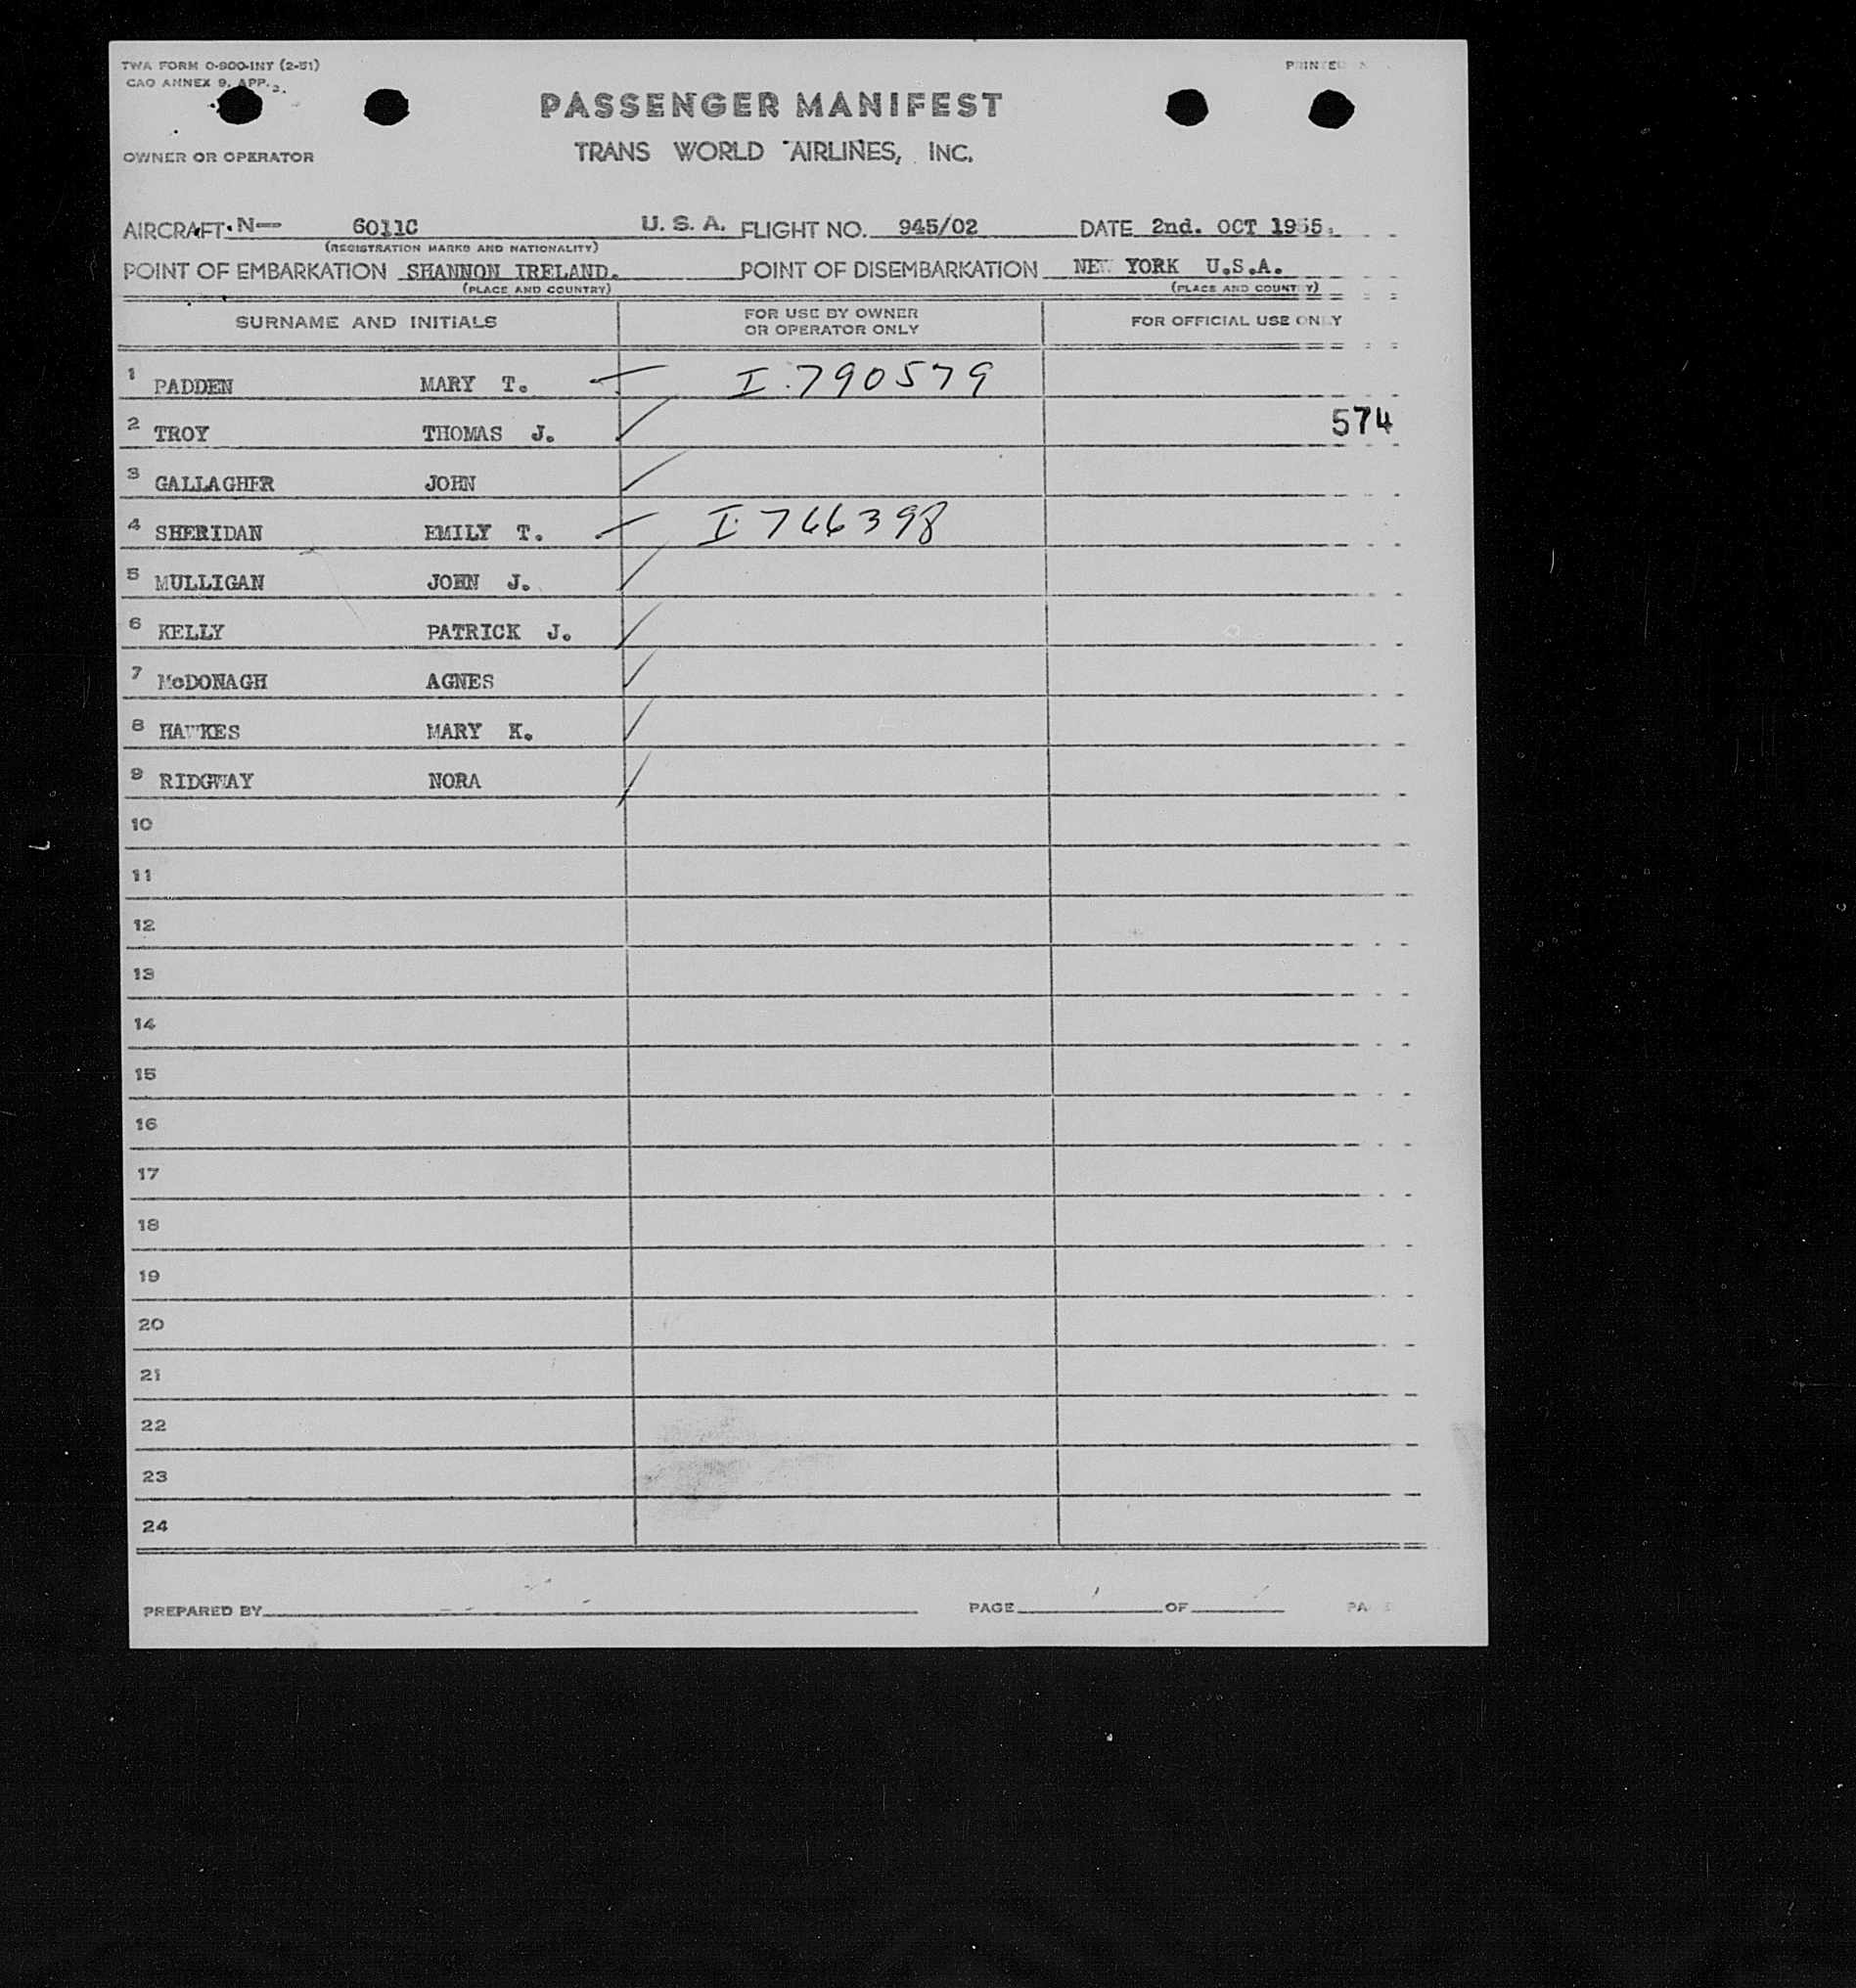 TWA FORM O-900-INT (2-51)
CAO ANNEX 9, APP. 2.
PRINTED
PASSENGER MANIFEST
OWNER OR OPERATOR TRANS WORLD AIRLINES, INC.
AIRCRAFT N— 6011C U. S. A. FLIGHT NO. 945/02 DATE 2nd. OCT 1955.
(REGISTRATION MARKS AND NATIONALITY)
POINT OF EMBARKATION SHANNON IRELAND. POINT OF DISEMBARKATION NEW YORK U.S.A.
(PLACE AND COUNTRY) (PLACE AND COUNTRY)
SURNAME AND INITIALS FOR USE BY OWNER OR OPERATOR ONLY FOR OFFICIAL USE ONLY
1 PADDEN MARY T. I.790579
2 TROY THOMAS J. 574
3 GALLAGHER JOHN
4 SHERIDAN EMILY T. I.766398
5 MULLIGAN JOHN J.
6 KELLY PATRICK J.
7 McDONAGH AGNES
8 HAWKES MARY K.
9 RIDGWAY NORA
10
11
12
13
14
15
16
17
18
19
20
21
22
23
24
PREPARED BY PAGE OF